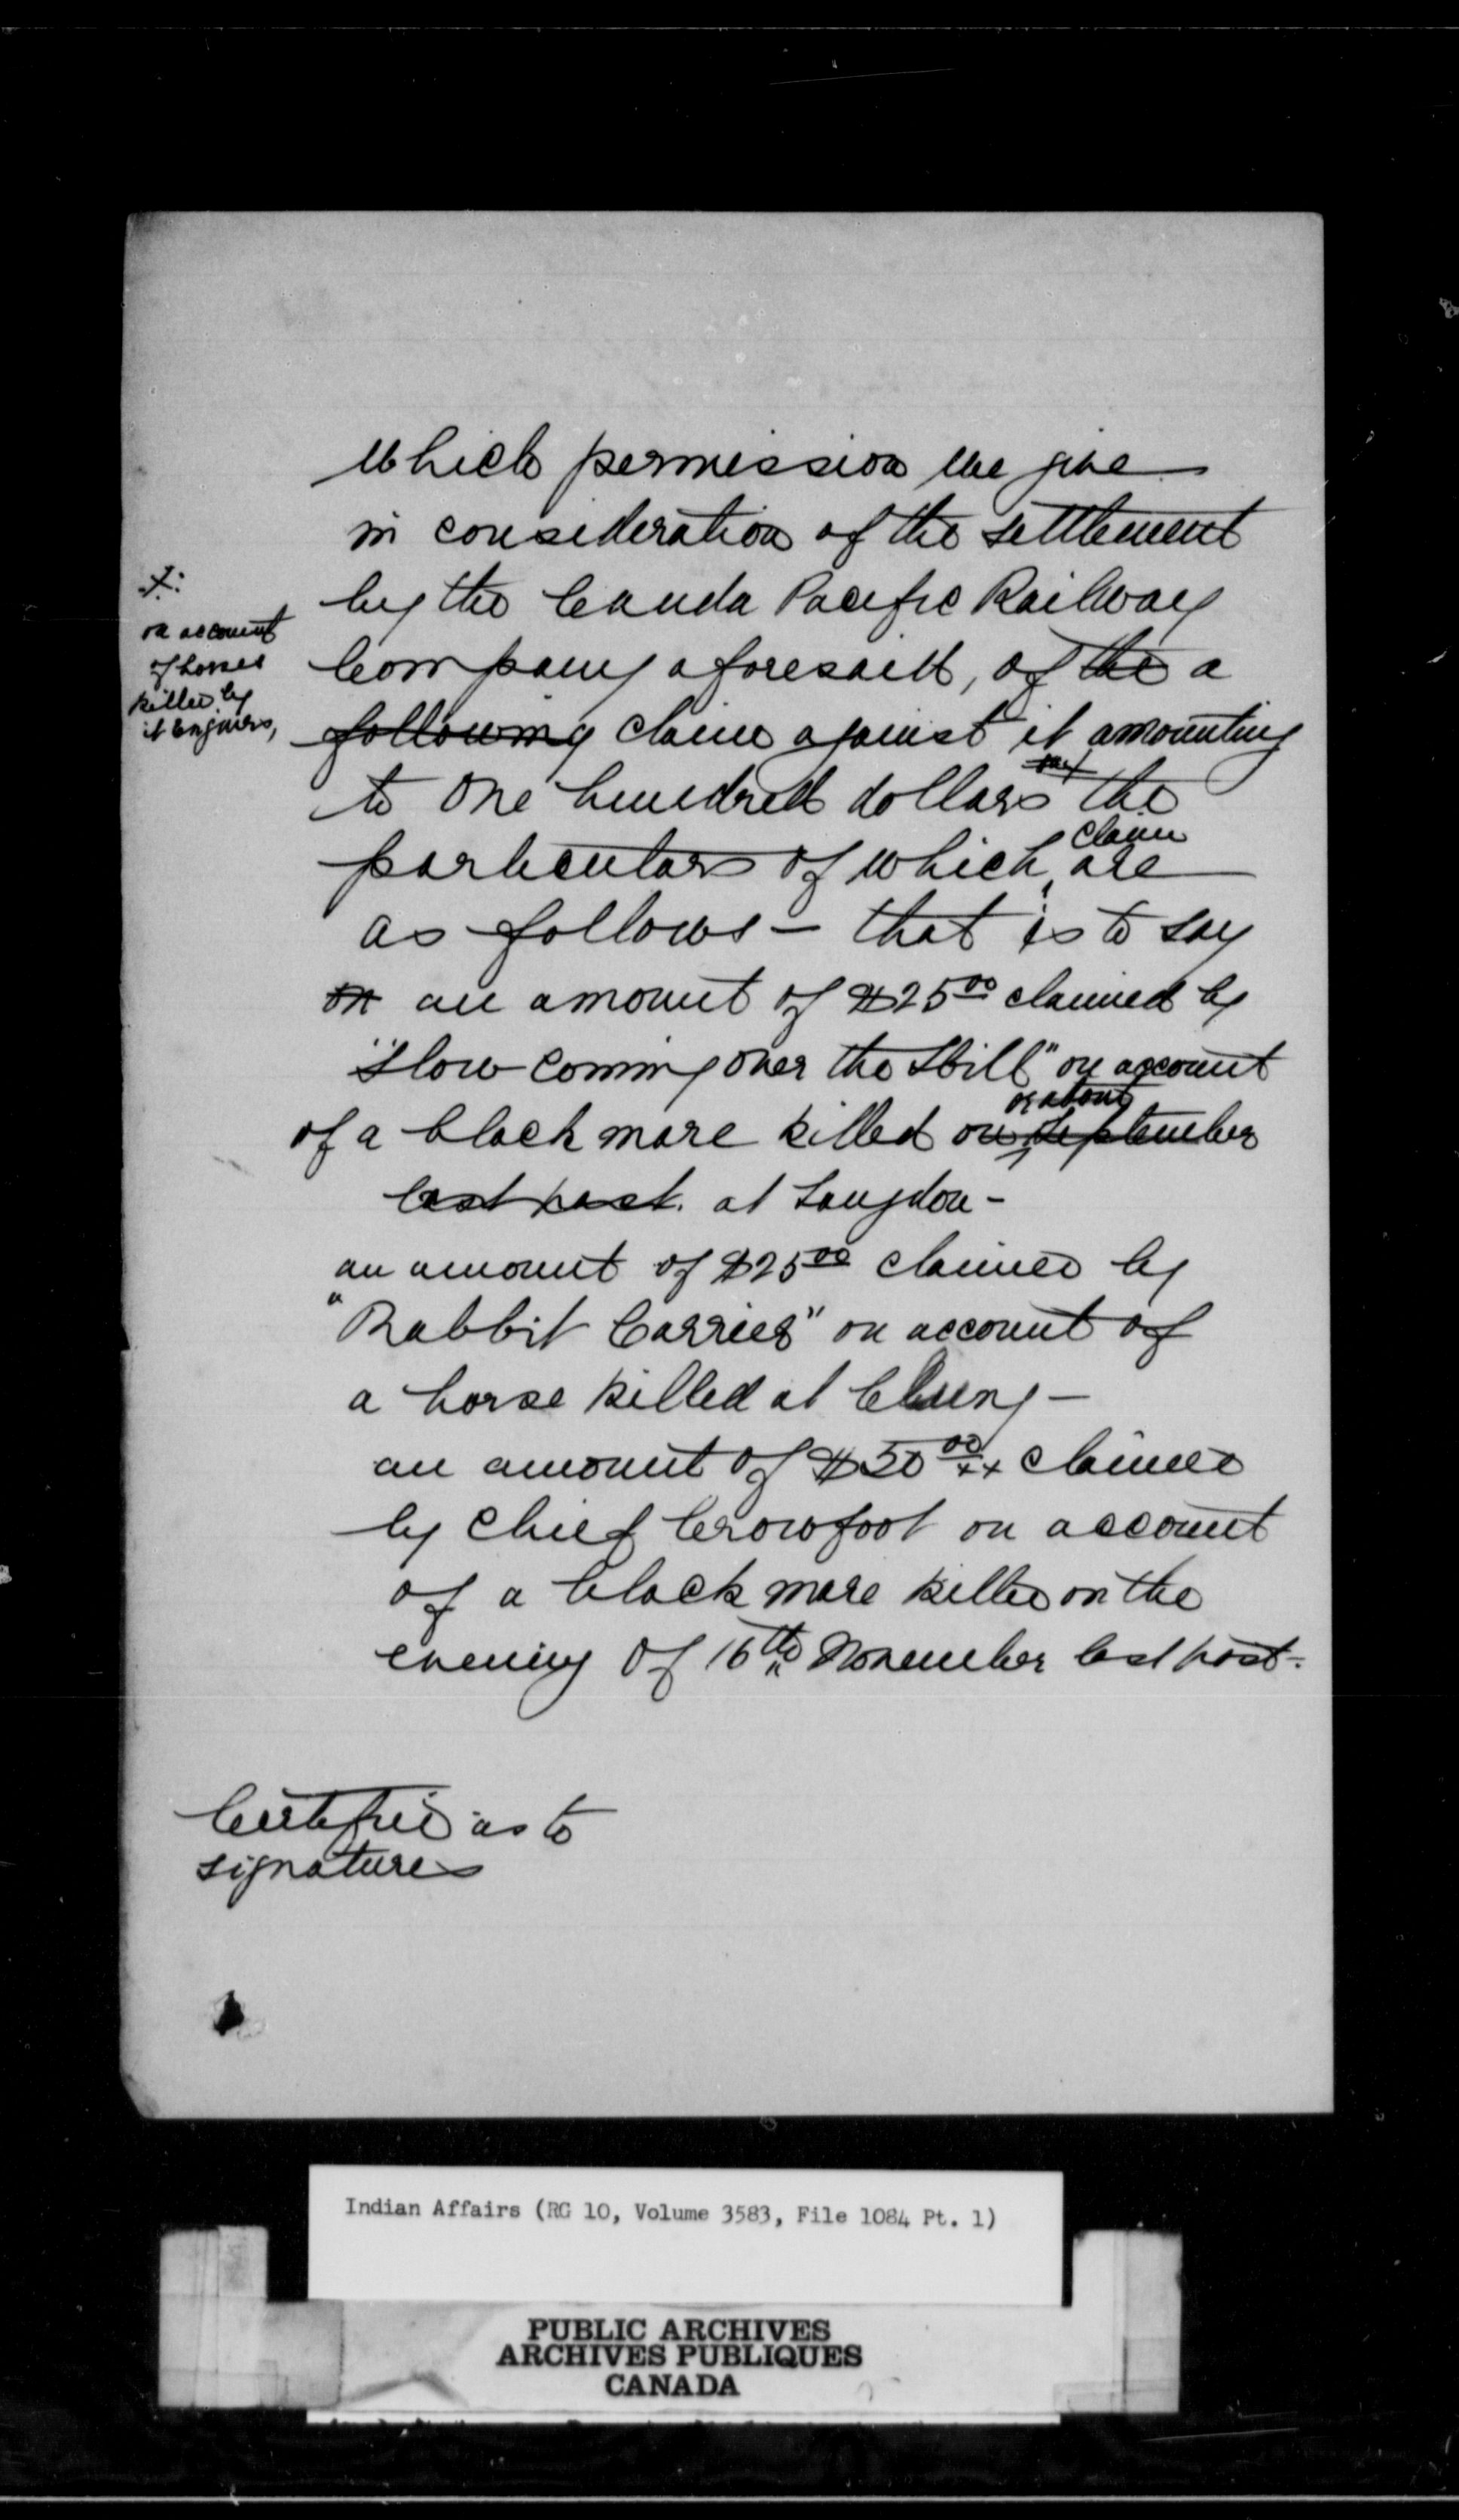 which permission we give
in consideration of the settlement
by the Canada Pacific Railway
+:
on account
of horses
killed by
it Engines,
Company aforesaid, of the a
following claim against it amounting
to One hundred dollars the
claim
particulars of which are
as follows - that is to say
on an amount of $25 00 claimed by
"Slow coming over the Hill" on account
or about
of a black mare killed on September
last past. at Langdon -
an amount of $25 00 claimed by
"Rabbit Carrier" on account of
a horse killed at Cluny -
an amount of $50 00 xx claimed
by Chief Crowfoot on account
of a black mare killed on the
evening of 16th November last past.
Certified as to
signatures
Indian Affairs (RG 10, Volume 3583, File 1084 Pt. 1)
PUBLIC ARCHIVES
ARCHIVES PUBLIQUES
CANADA